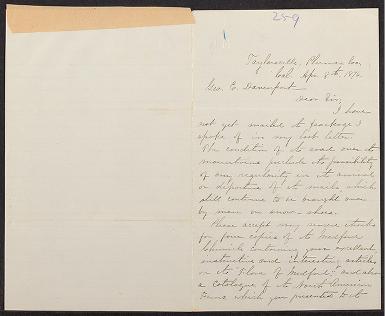 259
Taylorsville, Plumas Co.
Cal. Apr. 8th, 187
Geo. E. Davenport
Dear Sir,
I have
not yet mailed the package I
spoke of in my last letter.
The condition of the road over the
mountains preclude the possibility
of any regularity in the arrival
or departure of the mails which
still continue to be brought over
by men on snow-shoes.
Please accept my sincere thanks
for four copies of the Medford
Chronicle containing your excellent
instructive and interesting articles
on the "Flora of Medford" and also
a Catalogue of the North American
Ferns which you presented to the